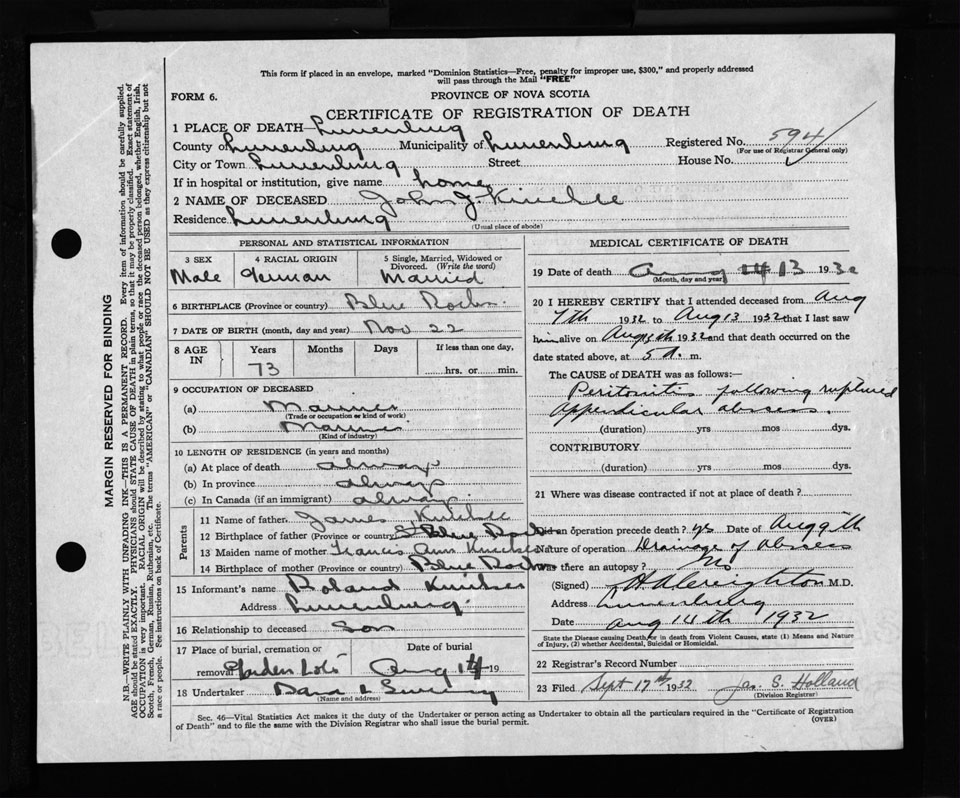 This form if placed in an envelope, marked "Dominion Statistics—Free, penalty for improper use, $300," and properly addressed
will pass through the Mail "FREE"
FORM 6.
PROVINCE OF NOVA SCOTIA
CERTIFICATE OF REGISTRATION OF DEATH
1 PLACE OF DEATH—Lunenburg
County of Lunenburg Municipality of Lunenburg Registered No. 594
(For use of Registrar General only)
City or Town Lunenburg Street House No.
If in hospital or institution, give name home
2 NAME OF DECEASED John J.
Residence Lunenburg
(Usual place of abode)
PERSONAL AND STATISTICAL INFORMATION
3 SEX Male
4 RACIAL ORIGIN German
5 Single, Married, Widowed or Divorced. (Write the word) Married
6 BIRTHPLACE (Province or country) Blue Rocks
7 DATE OF BIRTH (month, day and year) Nov 22
8 AGE IN Years 73 Months Days If less than one day, hrs. or min.
9 OCCUPATION OF DECEASED
(a) Mariner
(Trade or occupation or kind of work)
(b) Mariner
(Kind of industry)
10 LENGTH OF RESIDENCE (in years and months)
(a) At place of death always
(b) In province always
(c) In Canada (if an immigrant) always
Parents
11 Name of father James
12 Birthplace of father (Province or country) Blue Rocks
13 Maiden name of mother Francis Ann
14 Birthplace of mother (Province or country) Blue Rocks
15 Informant's name Roland
Address Lunenburg
16 Relationship to deceased Son
17 Place of burial, cremation or removal Garden Lots
Date of burial Aug 14 19
18 Undertaker
(Name and address)
MEDICAL CERTIFICATE OF DEATH
19 Date of death Aug 14 13 1932
(Month, day and year)
20 I HEREBY CERTIFY that I attended deceased from Aug
7th 1932 to Aug 13 1932 that I last saw
him alive on Aug 1932 and that death occurred on
date stated above, at 5 A. m.
The CAUSE of DEATH was as follows:—
Peritonitis following ruptured
appendicular abscess.
(duration) yrs mos dys.
CONTRIBUTORY
(duration) yrs mos dys.
21 Where was disease contracted if not at place of death?
Did an operation precede death? yes Date of Aug 9th
Nature of operation Drainage of Abscess
Was there an autopsy? No
(Signed) H A Creighton M.D.
Address Lunenburg
Date Aug 14th 1932
State the Disease causing Death, or in death from Violent Causes, state (1) Means and Nature
of Injury, (2) whether Accidental, Suicidal or Homicidal.
22 Registrar's Record Number
23 Filed Sept 17th 1932 Jas. S. Holland
(Division Registrar)
Sec. 46—Vital Statistics Act makes it the duty of the Undertaker or person acting as Undertaker to obtain all the particulars required in the "Certificate of Registration
of Death" and to file the same with the Division Registrar who shall issue the burial permit.
(OVER)
MARGIN RESERVED FOR BINDING
N.B.—WRITE PLAINLY WITH UNFADING INK—THIS IS A PERMANENT RECORD. Every item of information should be carefully supplied.
AGE should be stated EXACTLY. PHYSICIANS should STATE CAUSE OF DEATH in plain terms, so that it may be properly classified. Exact statement of
OCCUPATION is very important. RACIAL ORIGIN will be described by stating to what people or race the deceased person belonged, whether English, Irish,
Scotch, French, German, Russian, Ruthenian, etc. The terms "AMERICAN" or "CANADIAN" SHOULD NOT BE USED as they express citizenship but not
a race or people. See instructions on back of Certificate.